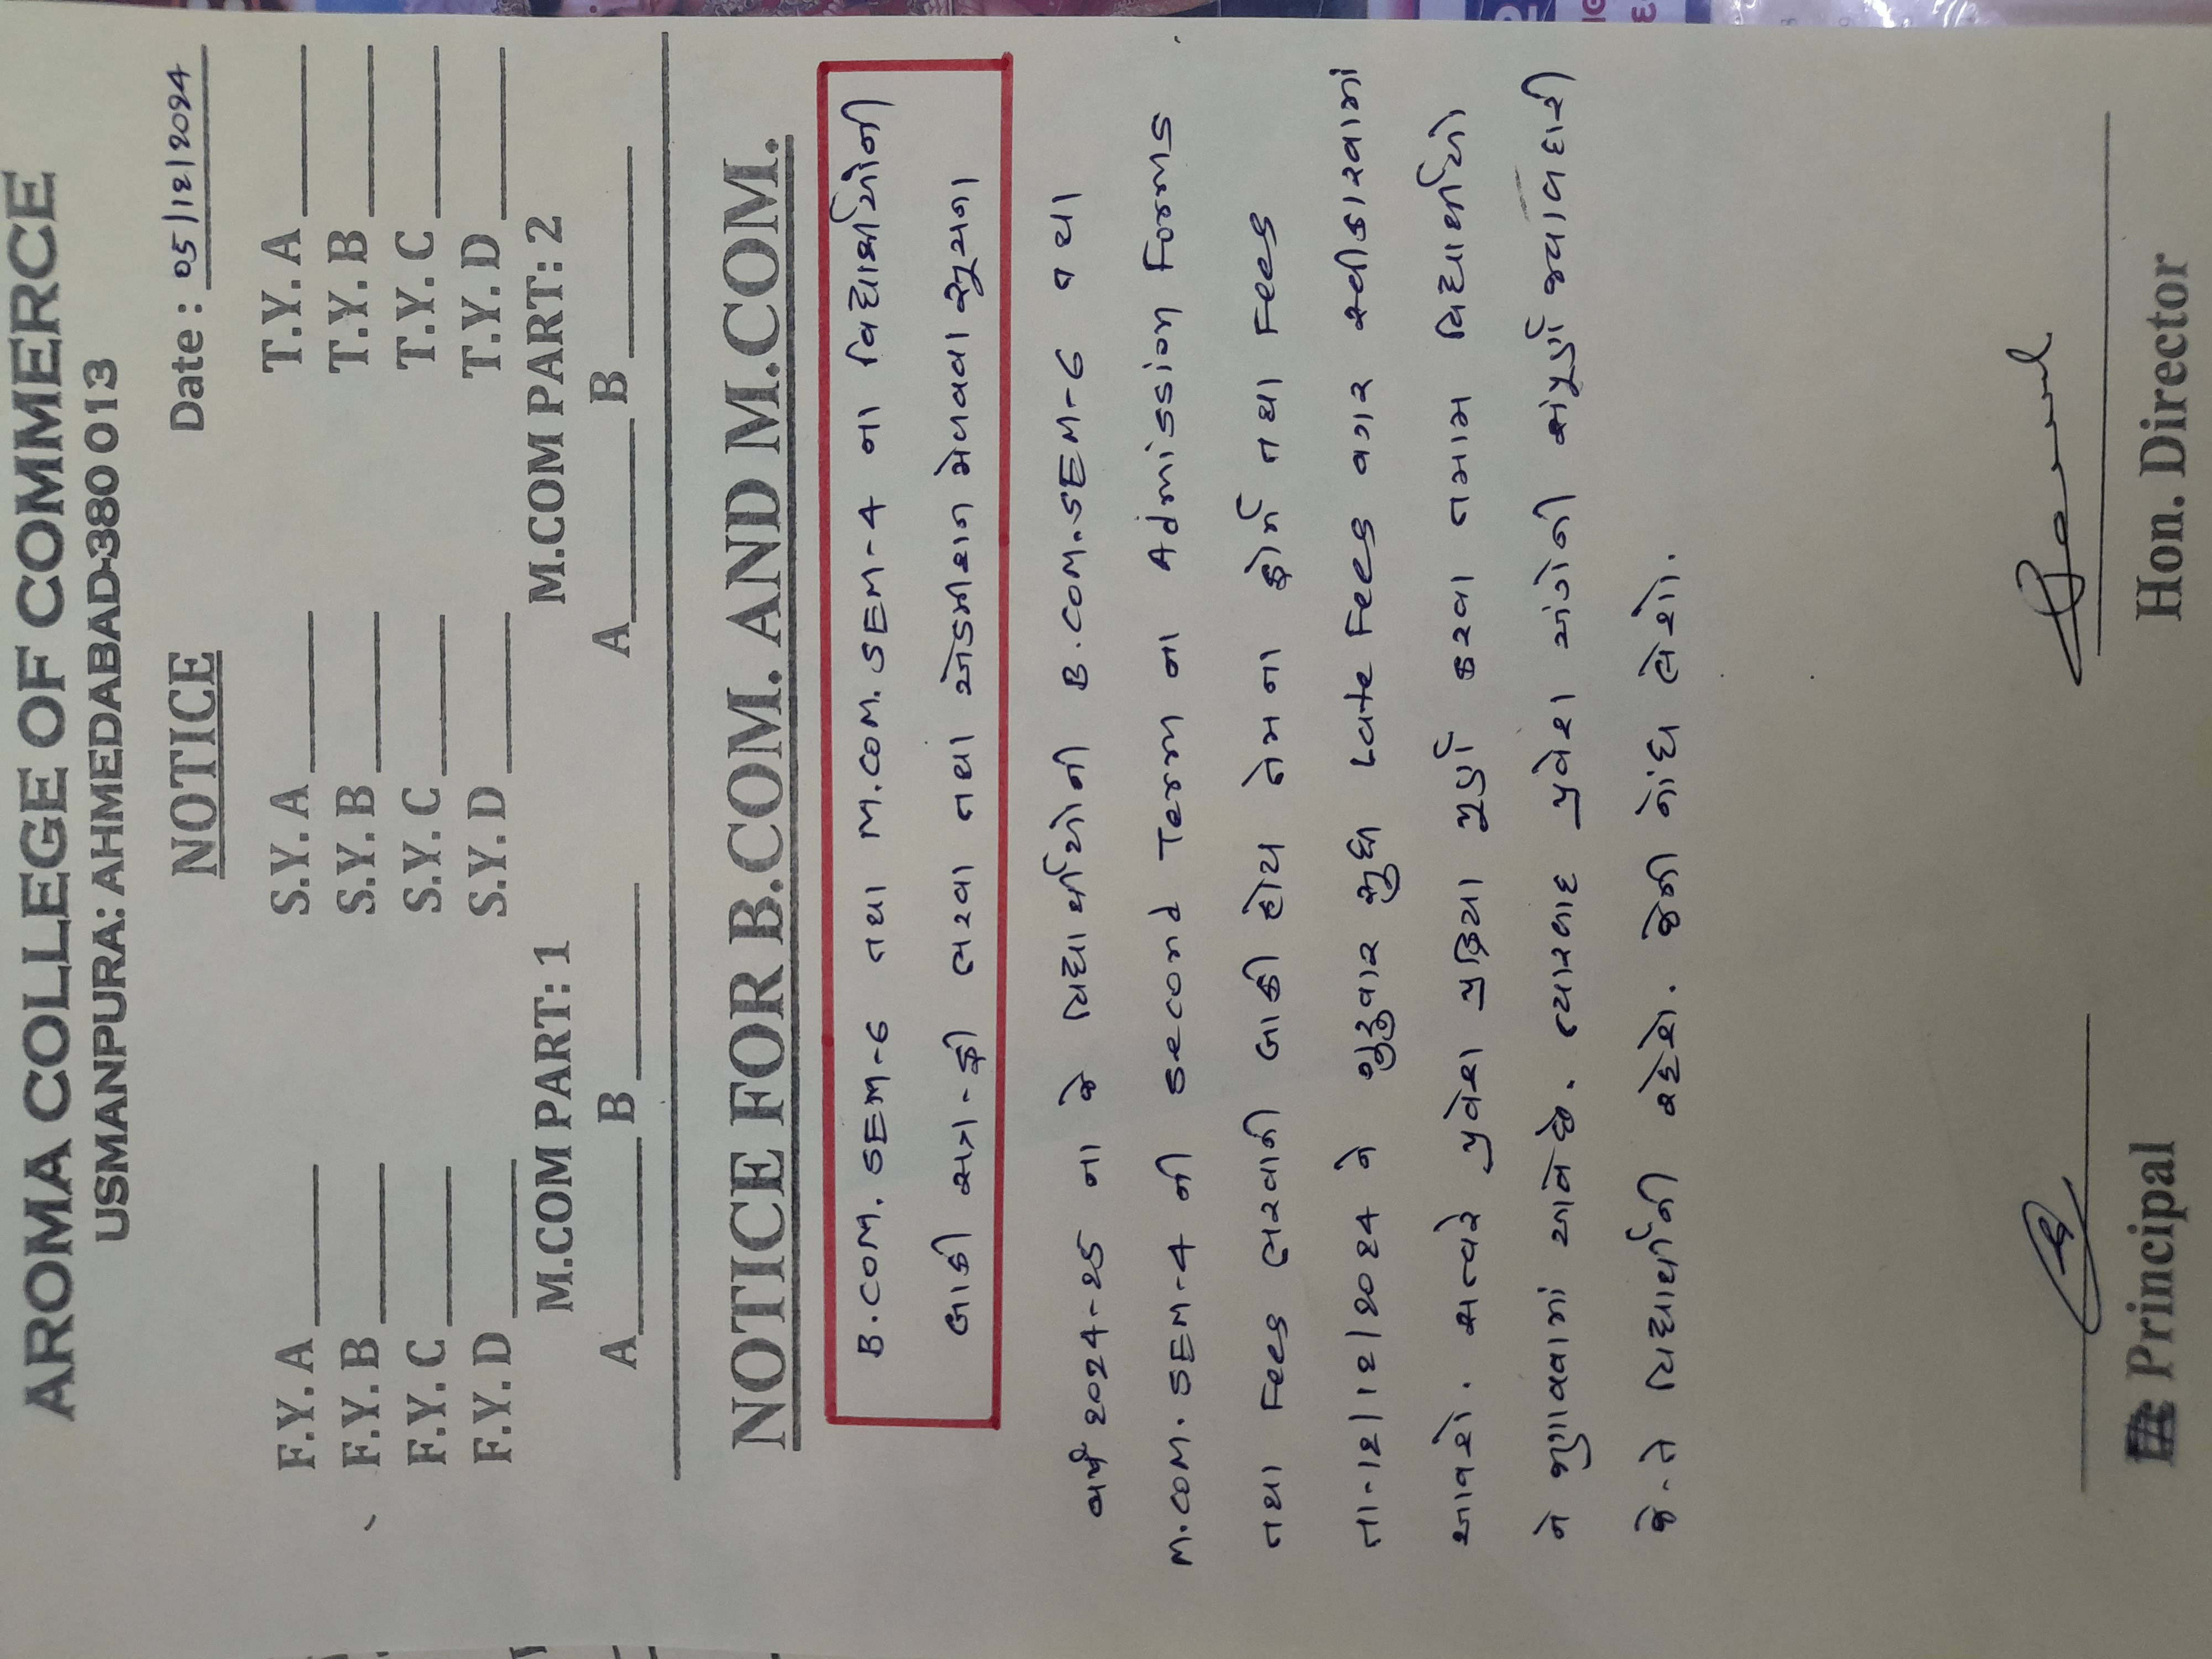 AROMA COLLEGE OF COMMERCE
USMANPURA: AHMEDABAD-380 013
NOTICE Date : 05/12/2024
F.Y. A S.Y. A T.Y. A
F.Y. B S.Y. B T.Y. B
F.Y. C S.Y. C T.Y. C
F.Y. D S.Y. D T.Y. D
M.COM PART: 1 M.COM PART: 2
A B A B
NOTICE FOR B.COM. AND M.COM.
B.COM. SEM-6 તથા M.COM. SEM-4 ના વિદ્યાર્થીઓની
બાકી સત્ર-ફી ભરવા તથા એડમીશન મેળવવા સૂચના
વર્ષ 2024-25 ના જે વિદ્યાર્થીઓની B.COM.SEM-6 તથા
M.COM. SEM-4 ની Second Term ના Admission Forms
તથા Fees ભરવાની બાકી હોય તેમના ફોર્મ તથા Fees
તા-12/12/2024 ને ગુરુવાર સુધી Late Fees વગર સ્વીકારવામાં
આવશે. સત્વરે પ્રવેશ પ્રક્રિયા પૂર્ણ કરવા તમામ વિદ્યાર્થીઓ
ને જણાવવામાં આવે છે. ત્યારબાદ પ્રવેશ અંગેની સંપૂર્ણ જવાબદારી
જે-તે વિદ્યાર્થીની રહેશે. જેની નોંધ લેશો.
Principal Hon. Director